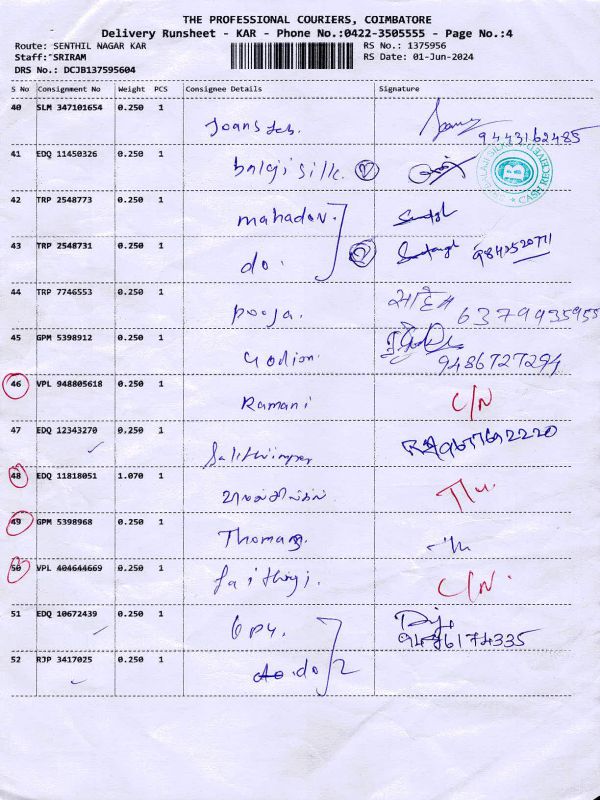 THE PROFESSIONAL COURIERS, COIMBATORE
Delivery Runsheet - KAR - Phone No.:0422-3505555 - Page No.:4
Route: SENTHIL NAGAR KAR RS No.: 1375956
Staff: SRIRAM RS Date: 01-Jun-2024
DRS No.: DCJB137595604
S No Consignment No Weight PCS Consignee Details Signature
40 SLM 347101654 0.250 1
9443162485
41 EDQ 11450326 0.250 1
balaji silk. 2
42 TRP 2548773 0.250 1
mahadev.
43 TRP 2548731 0.250 1
do. 2
44 TRP 7746553 0.250 1
Pooja. 6379935955
45 GPM 5398912 0.250 1
9486727294
46 VPL 948805618 0.250 1
Ramani C/N
47 EDQ 12343270 0.250 1
48 EDQ 11818051 1.070 1
49 GPM 5398968 0.250 1
Thomas
50 VPL 404644669 0.250 1
C/N.
51 EDQ 10672439 0.250 1
52 RJP 3417025 0.250 1
do. do 2